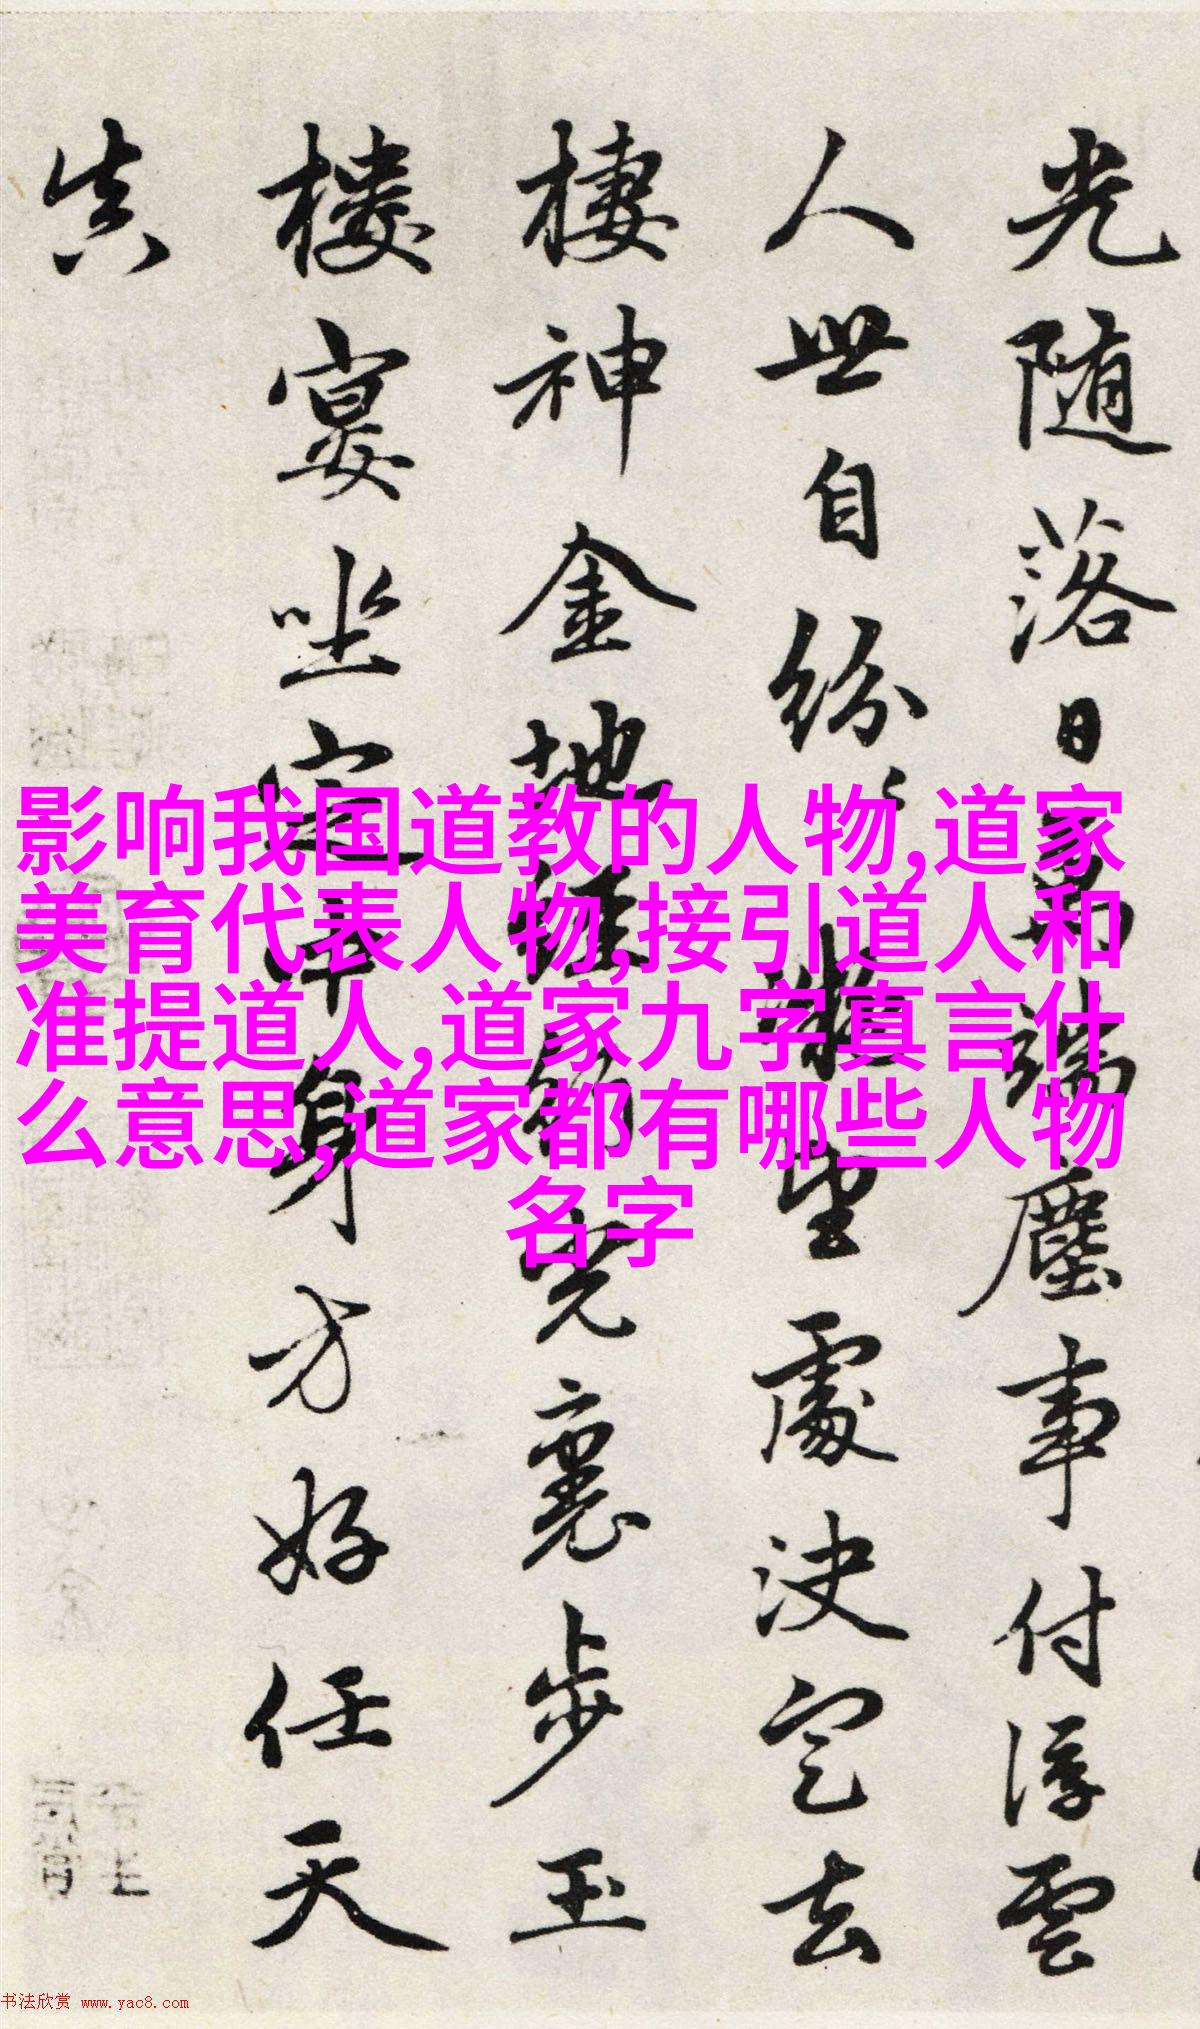 光随落日万端塵事付浮雲
人世自紛〻凝望處决定去
棲神金地經光裏步玉
楼宴坐定中身方好任天
真
影响我国道教的人物,道家
美育代表人物,接引道人和
准提道人,道家九字真言什
么意思,道家都有哪些人物
名字
书法欣赏 www.yac8.com